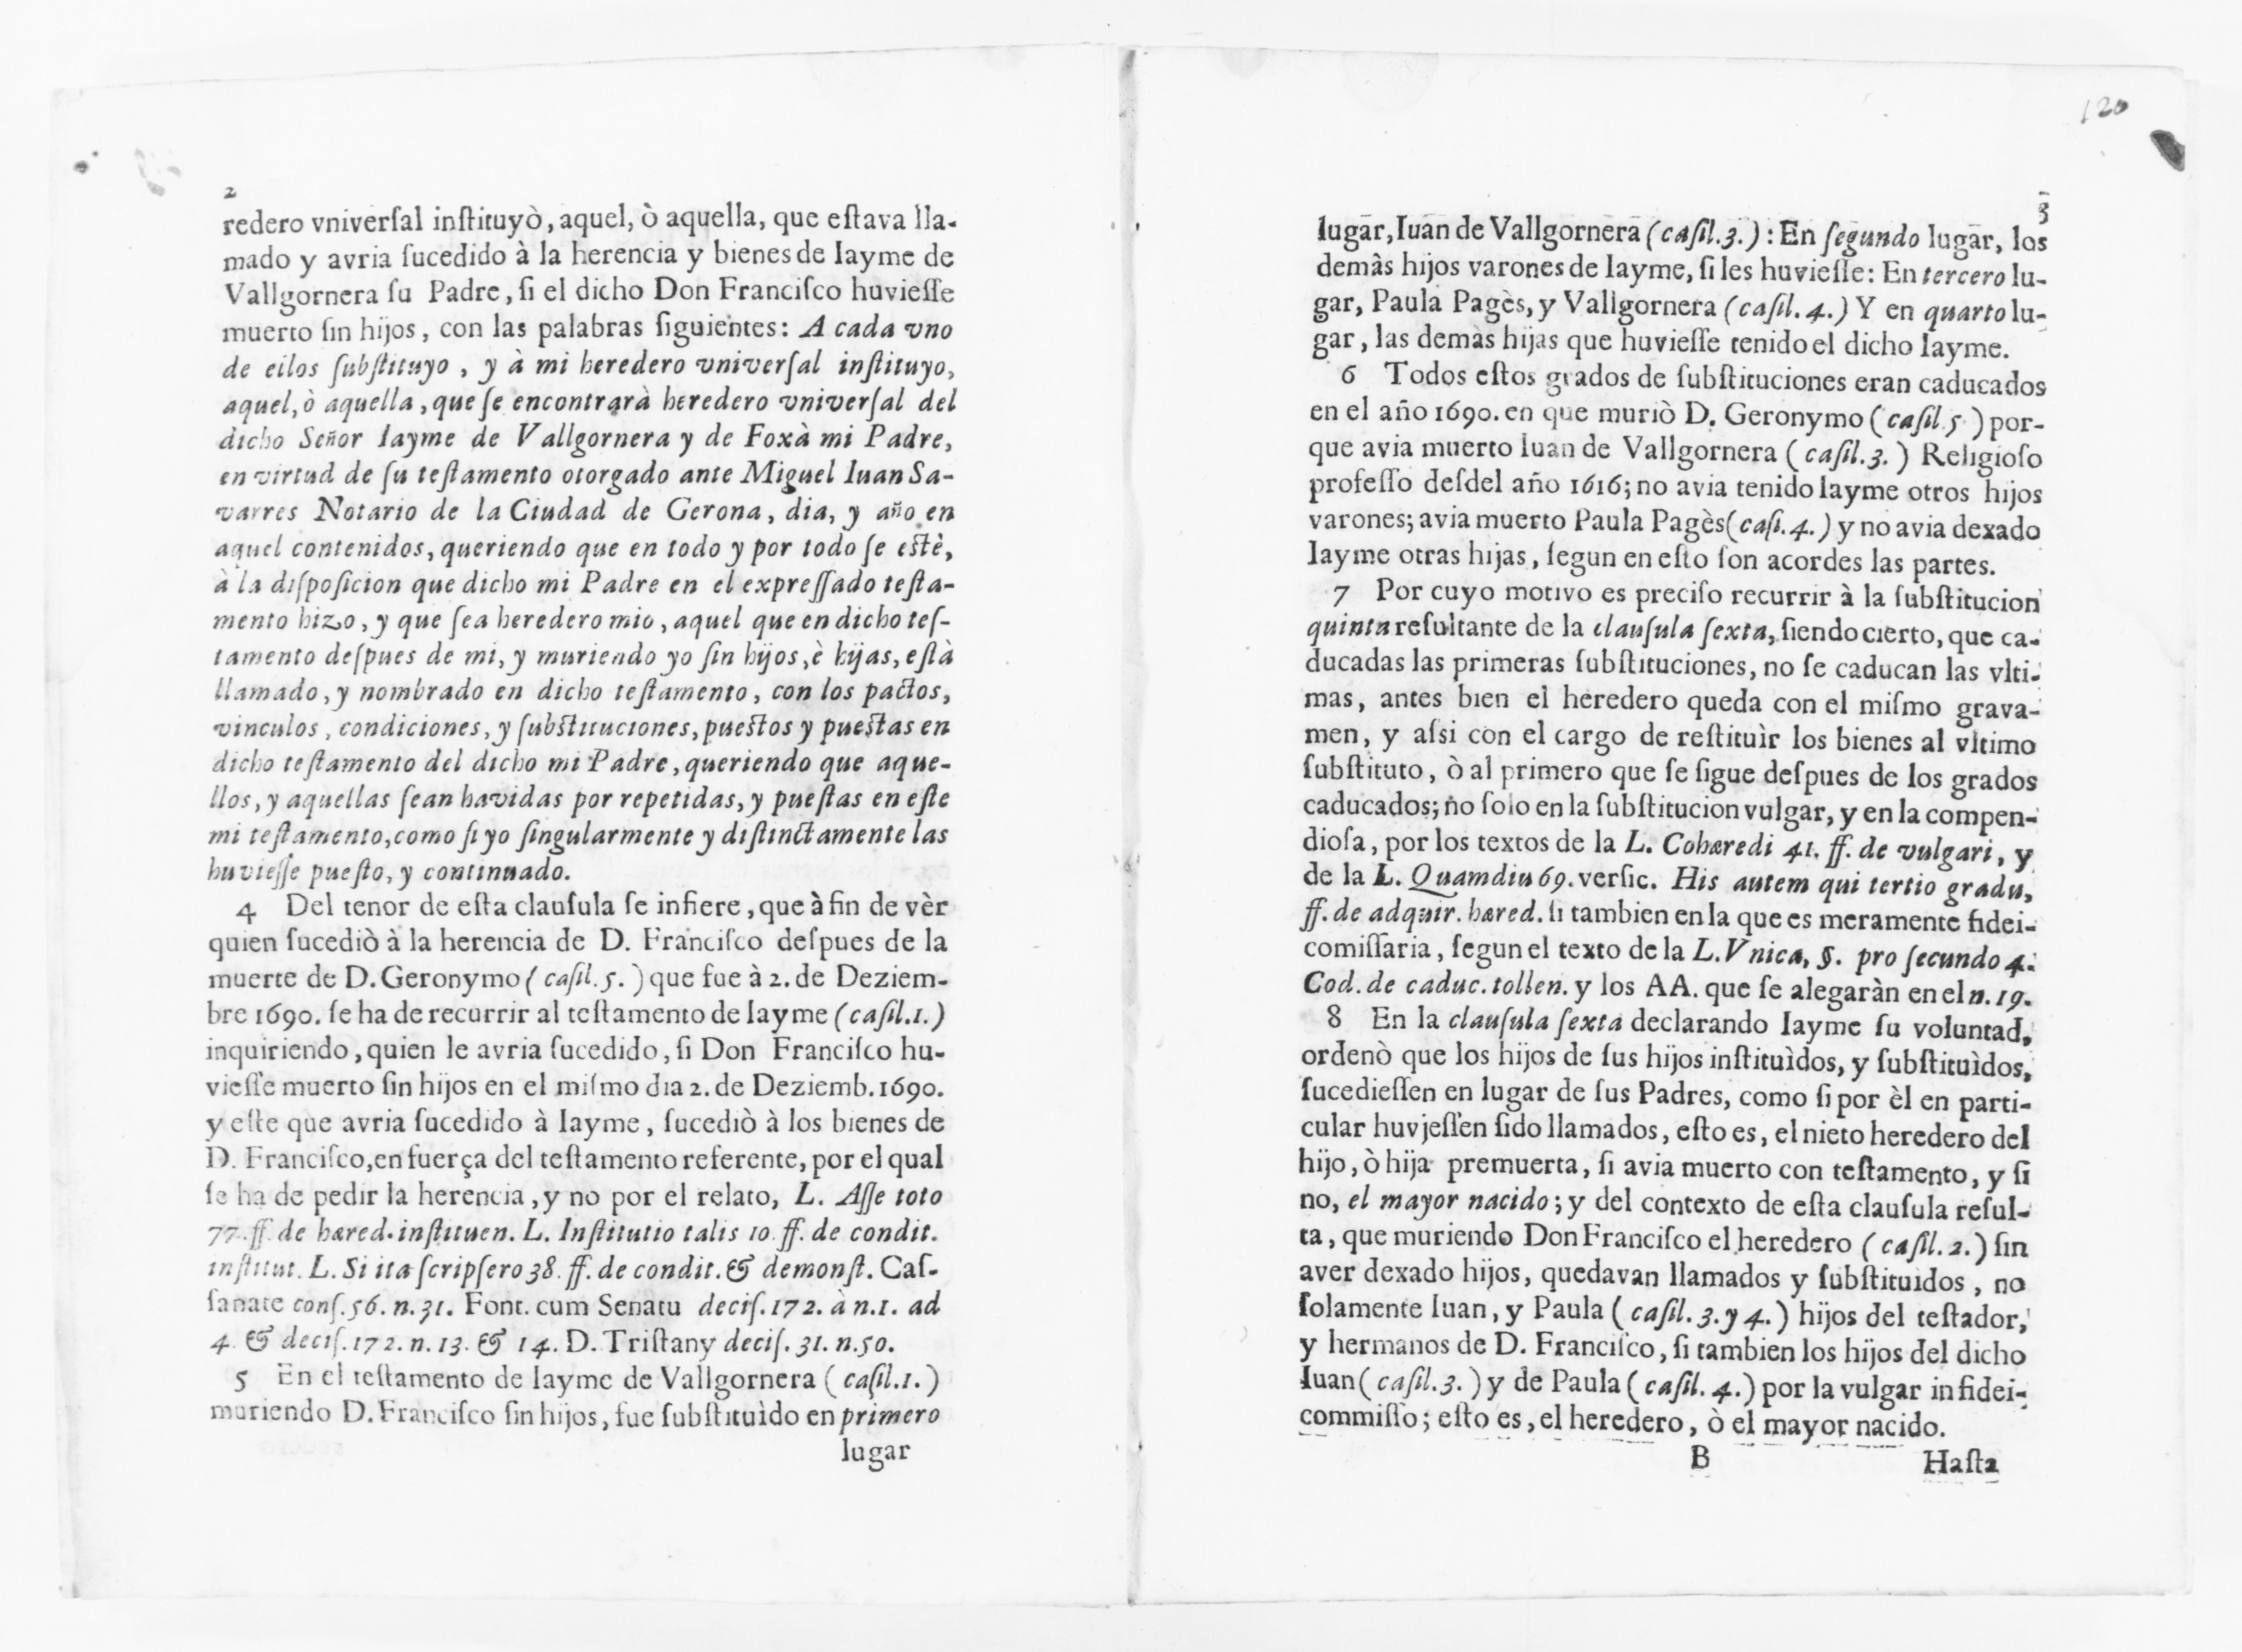 2
redero vniverſal inſtituyò, aquel, ò aquella, que eſtava lla-
mado y avria ſucedido à la herencia y bienes de Iayme de
Vallgornera ſu Padre, ſi el dicho Don Franciſco huvieſſe
muerto ſin hijos, con las palabras ſiguientes: A cada vno
de ellos ſubſtituyo, y à mi heredero vniverſal inſtituyo,
aquel, ò aquella, que ſe encontrarà heredero vniverſal del
dicho Señor Iayme de Vallgornera y de Foxà mi Padre,
en virtud de ſu teſtamento otorgado ante Miguel Iuan Sa-
varres Notario de la Ciudad de Gerona, dia, y año en
aquel contenidos, queriendo que en todo y por todo ſe eſtè,
à la diſpoſicion que dicho mi Padre en el expreſſado teſta-
mento hizo, y que ſea heredero mio, aquel que en dicho teſ-
tamento deſpues de mi, y muriendo yo ſin hijos, è hijas, eſtà
llamado, y nombrado en dicho teſtamento, con los pactos,
vinculos, condiciones, y ſubſtituciones, pueſtos y pueſtas en
dicho teſtamento del dicho mi Padre, queriendo que aque-
llos, y aquellas ſean havidas por repetidas, y pueſtas en eſte
mi teſtamento, como ſi yo ſingularmente y diſtinctamente las
huvieſſe pueſto, y continuado.
4 Del tenor de eſta clauſula ſe infiere, que à fin de vèr
quien ſucediò à la herencia de D. Franciſco deſpues de la
muerte de D. Geronymo (caſil. 5.) que fue à 2. de Deziem-
bre 1690. ſe ha de recurrir al teſtamento de Iayme (caſil.1.)
inquiriendo, quien le avria ſucedido, ſi Don Franciſco hu-
vieſſe muerto ſin hijos en el miſmo dia 2. de Deziemb. 1690.
y eſte que avria ſucedido à Iayme, ſucediò à los bienes de
D. Franciſco, en fuerça del teſtamento referente, por el qual
ſe ha de pedir la herencia, y no por el relato, L. Aſſe toto
77. ff. de hæred. inſtituen. L. Inſtitutio talis 10. ff. de condit.
inſtitut. L. Si ita ſcripſero 38. ff. de condit. & demonſt. Caſ-
ſanate conſ. 56. n. 31. Font. cum Senatu deciſ. 172. à n. 1. ad
4. & deciſ. 172. n. 13. & 14. D. Triſtany deciſ. 31. n. 50.
5 En el teſtamento de Iayme de Vallgornera (caſil.1.)
muriendo D. Franciſco ſin hijos, fue ſubſtituìdo en primero
lugar
120
3
lugar, Iuan de Vallgornera (caſil. 3.): En ſegundo lugar, los
demàs hijos varones de Iayme, ſi les huvieſſe: En tercero lu-
gar, Paula Pagès, y Vallgornera (caſil. 4.) Y en quarto lu-
gar, las demàs hijas que huvieſſe tenido el dicho Iayme.
6 Todos eſtos grados de ſubſtituciones eran caducados
en el año 1690. en que muriò D. Geronymo (caſil 5) por-
que avia muerto Iuan de Vallgornera (caſil. 3.) Religioſo
profeſſo deſdel año 1616; no avia tenido Iayme otros hijos
varones; avia muerto Paula Pagès (caſi. 4.) y no avia dexado
Iayme otras hijas, ſegun en eſto ſon acordes las partes.
7 Por cuyo motivo es preciſo recurrir à la ſubſtitucion
quinta reſultante de la clauſula ſexta, ſiendo cierto, que ca-
ducadas las primeras ſubſtituciones, no ſe caducan las vlti-
mas, antes bien el heredero queda con el miſmo grava-
men, y aſsi con el cargo de reſtituìr los bienes al vltimo
ſubſtituto, ò al primero que ſe ſigue deſpues de los grados
caducados; no ſolo en la ſubſtitucion vulgar, y en la compen-
dioſa, por los textos de la L. Cohæredi 41. ff. de vulgari, y
de la L. Quamdiu 69. verſic. His autem qui tertio gradu,
ff. de adquir. hæred. ſi tambien en la que es meramente fidei-
comiſſaria, ſegun el texto de la L. Vnica, §. pro ſecundo 4.
Cod. de caduc. tollen. y los AA. que ſe alegaràn en el n. 19.
8 En la clauſula ſexta declarando Iayme ſu voluntad,
ordenò que los hijos de ſus hijos inſtituìdos, y ſubſtituìdos,
ſucedieſſen en lugar de ſus Padres, como ſi por èl en parti-
cular huvjeſſen ſido llamados, eſto es, el nieto heredero del
hijo, ò hija premuerta, ſi avia muerto con teſtamento, y ſi
no, el mayor nacido; y del contexto de eſta clauſula reſul-
ta, que muriendo Don Franciſco el heredero (caſil. 2.) ſin
aver dexado hijos, quedavan llamados y ſubſtituidos, no
ſolamente Iuan, y Paula (caſil. 3. y 4.) hijos del teſtador,
y hermanos de D. Franciſco, ſi tambien los hijos del dicho
Iuan (caſil. 3.) y de Paula (caſil. 4.) por la vulgar in fidei-
commiſſo; eſto es, el heredero, ò el mayor nacido.
B Haſta